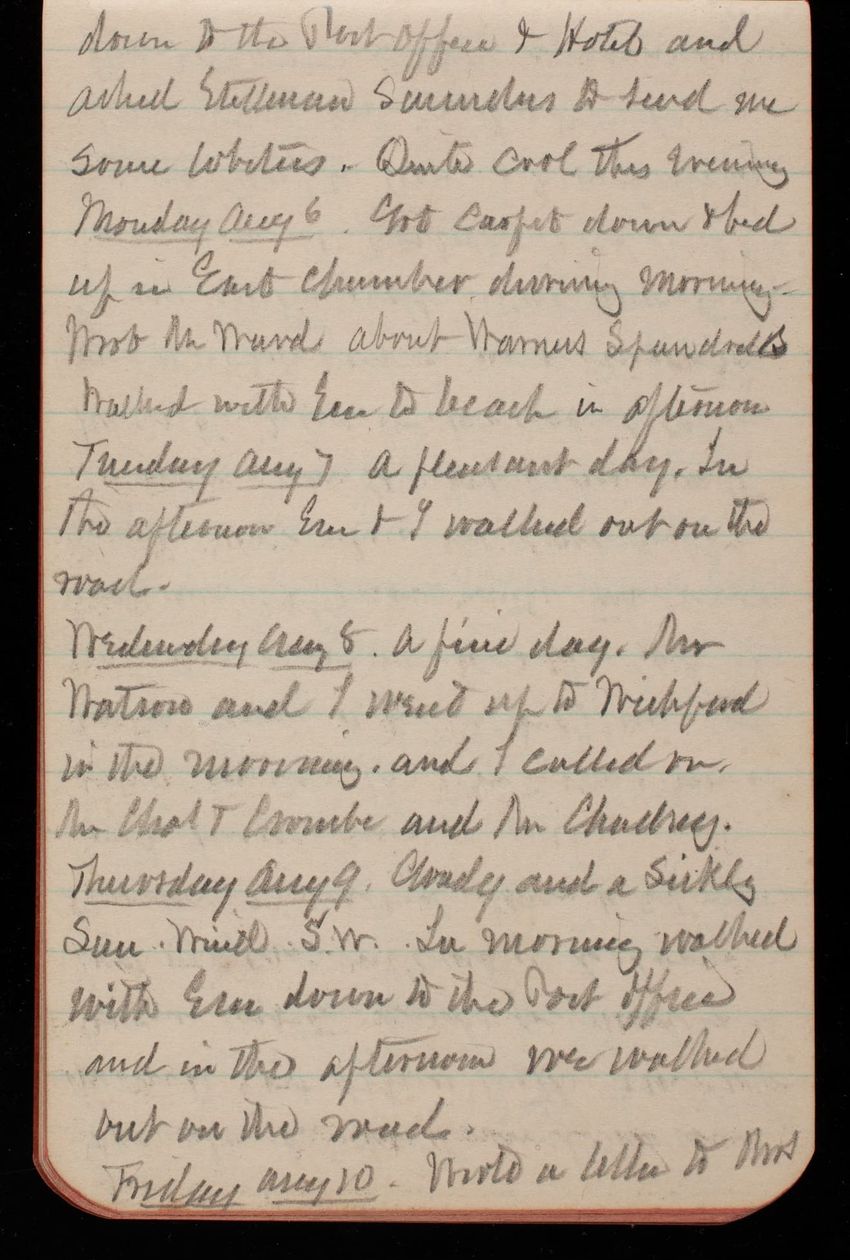 down to the Post Office & Hotel and
asked Stillman Saunders to send me
some lobsters. Quite cool this evening
Monday Aug 6. Got carpet down & bed
up in East Chamber during morning.
Wrote Mr Ward about Warners Spandrells
Walked with Em to beach in afternoon
Tuesday Aug 7 A pleasant day. In
the afternoon Em & I walked out on the
road.
Wednesday Aug 8. A fine day. Mr
Watson and I went up to Wickford
in the morning. and I called on.
Mr Chas T Crombe and Mr Chadsey.
Thursday Aug 9. Cloudy and a Sickly
Sun. Wind S.W. In morning walked
with Em down to the Post Office
and in the afternoon we walked
out on the road.
Friday Aug 10. Wrote a letter to Mrs